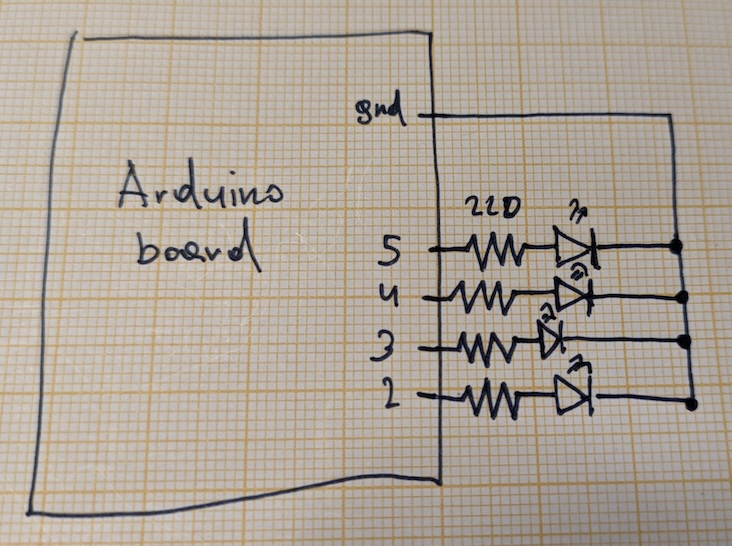 gnd
Arduino
board
220
5
4
3
2